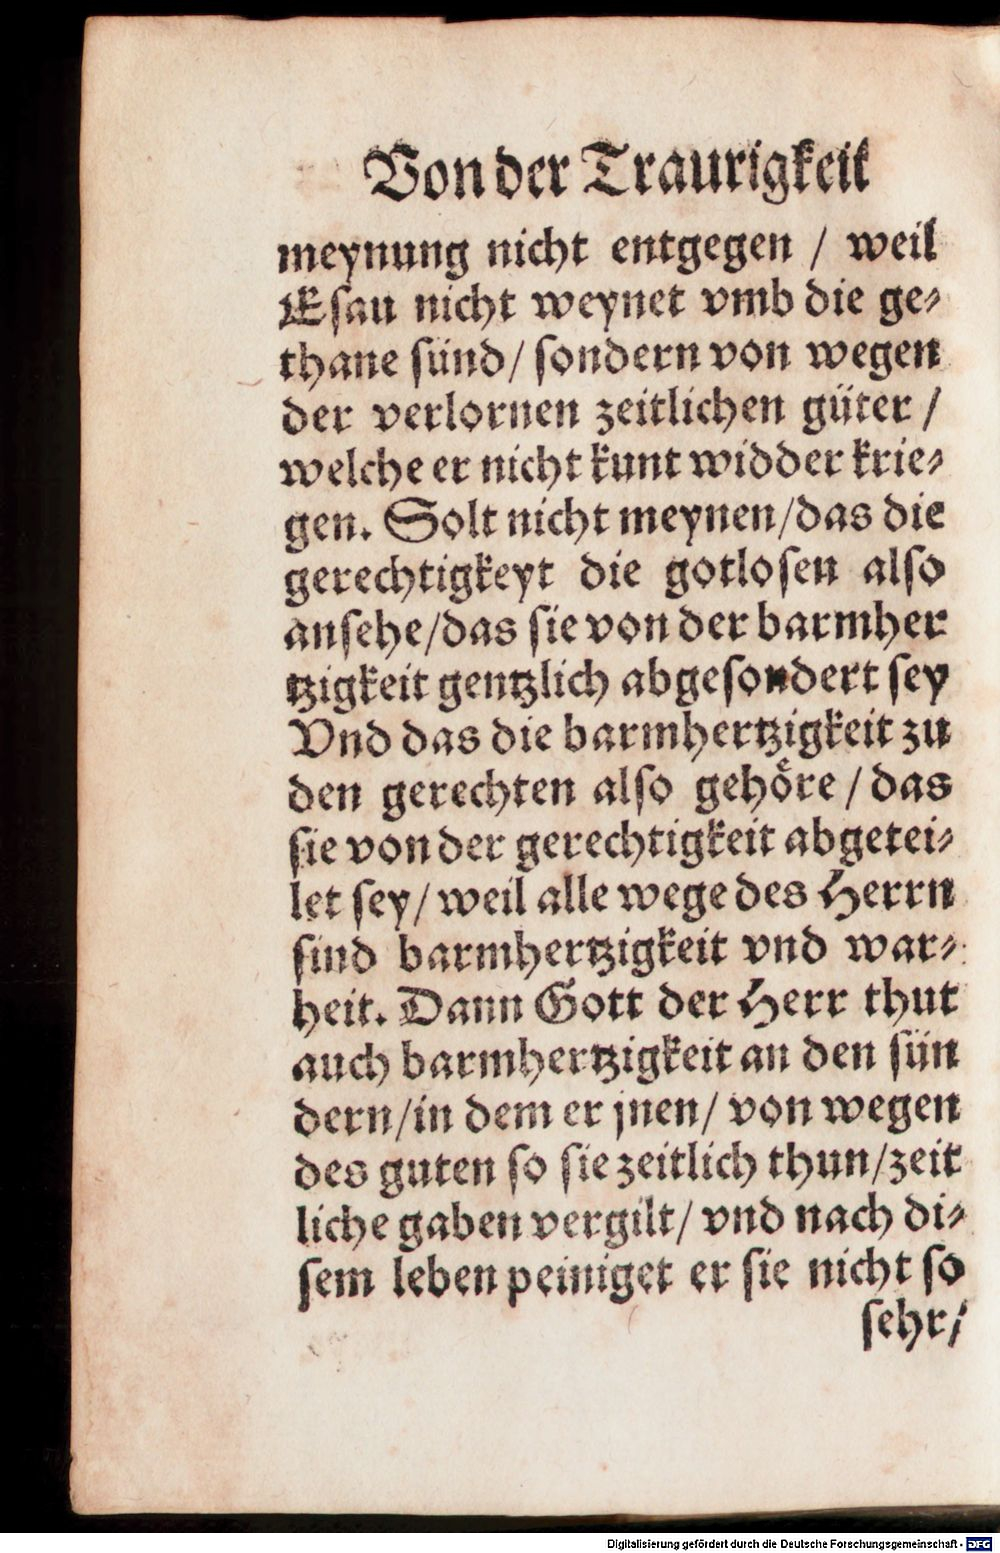 Von der Traurigkeit
meynung nicht entgegen / weil
Esau nicht weynet vmb die ge⸗
thane sünd / sondern von wegen
der verlornen zeitlichen güter /
welche er nicht kunt widder krie⸗
gen. Solt nicht meynen / das die
gerechtigkeyt die gotlosen also
ansehe / das sie von der barmher
tzigkeit gentzlich abgesondert sey
Vnd das die barmhertzigkeit zu
den gerechten also gehöre / das
sie von der gerechtigkeit abgetei⸗
let sey / weil alle wege des Herrn
sind barmhertzigkeit vnd war⸗
heit. Dann Gott der Herr thut
auch barmhertzigkeit an den sün
dern / in dem er jnen / von wegen
des guten so sie zeitlich thun / zeit
liche gaben vergilt / vnd nach di⸗
sem leben peiniget er sie nicht so
sehr /
Digitalisierung gefördert durch die Deutsche Forschungsgemeinschaft - DFG